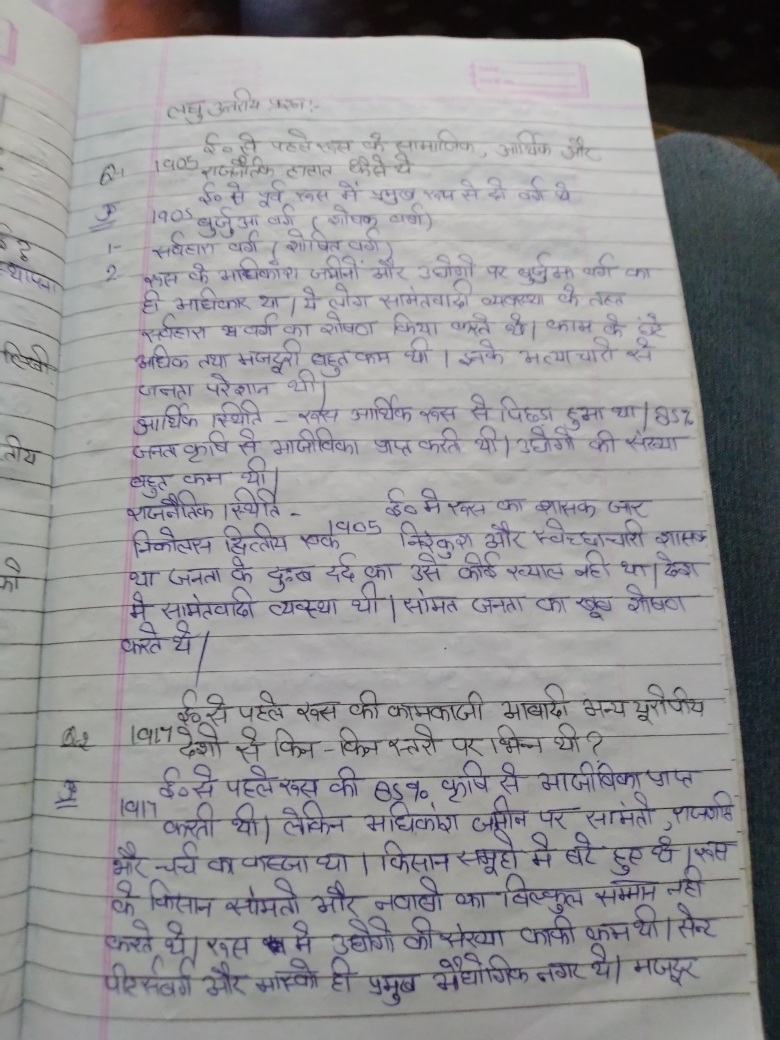 लघु उत्तरीय प्रश्न:-
Q1 1905 ई० से पहले रूस के सामाजिक, आर्थिक और
राजनैतिक हालात कैसे थे
उ 1905 ई० से पूर्व रूस में प्रमुख रूप से दो वर्ग थे
1- बुर्जुआ वर्ग (शोषक वर्ग)
2 सर्वहारा वर्ग (शोषित वर्ग)
रूस के अधिकांश जमीनों और उद्योगो पर बुर्जुआ वर्ग का
ही अधिकार था | ये लोग सामंतवादी व्यवस्था के तहत
सर्वहारा वर्ग का शोषण किया करते थे | काम के घंटे
अधिक तथा मजदूरी बहुत कम थी | इनके अत्याचारो से
जनता परेशान थी |
आर्थिक स्थिति - रूस आर्थिक रूस से पिछडा हुआ था | 85%
जनता कृषि से आजीविका प्राप्त करती थी | उद्योगो की संख्या
बहुत कम थी |
राजनैतिक स्थिति - 1905 ई० मे रूस का शासक जार
निकोलस द्वितीय एक निरंकुश और स्वेच्छाचारी शासक
था जनता के दुःख दर्द का उसे कोई ख्याल नही था | देश
मे सामंतवादी व्यवस्था थी | सांमत जनता का खूब शोषण
करते थे |
Q2 1917 ई० से पहले रूस की कामकाजी आबादी अन्य यूरोपीय
देशो से किन - किन स्तरो पर भिन्न थी ?
उ 1917 ई० से पहले रूस की 85% कृषि से आजीविका प्राप्त
करती थी | लेकिन अधिकांश जमीन पर सामंतो, राजशाही
और चर्च का कब्जा था | किसान समूहो मे बटे हुए थे | रूस
के किसान सांमतो और नवाबो का बिल्कुल सम्मान नही
करते थे | रूस मे उद्योगो की संख्या काफी कम थी | सेन्ट
पीटर्सबर्ग और मास्को ही प्रमुख औद्योगिक नगर थे | मजदूर